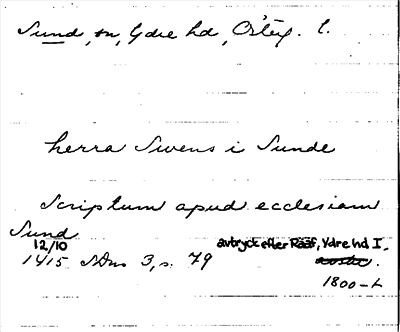 Sund, sn, Ydre hd, Östg. l.
herra Swens i Sunde
Scriptum apud ecclesiam
Sund
12/10 avtryck efter Rääf, Ydre hd I,
1415 SDns 3, s. 79
1800-t